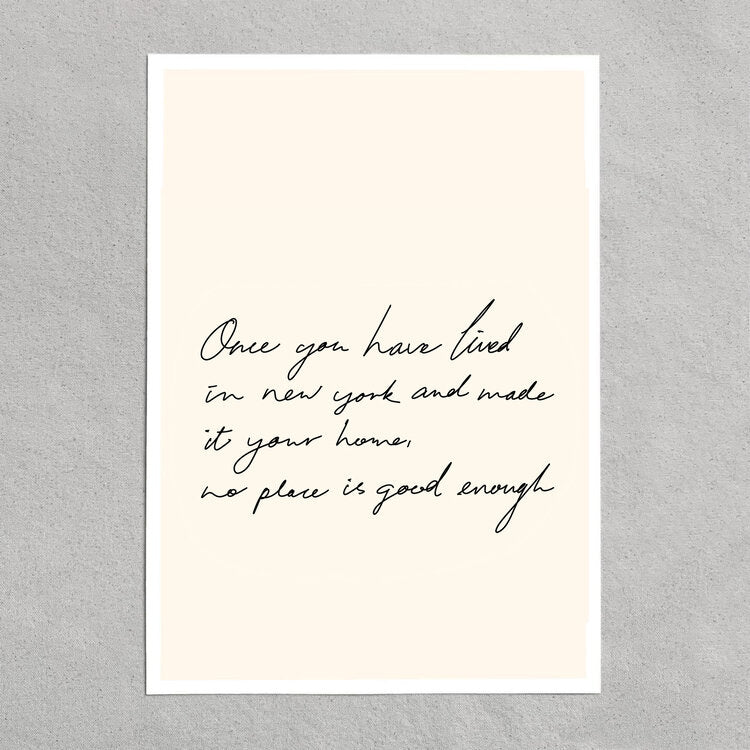 Once you have lived
in new york and made
it your home,
no place is good enough